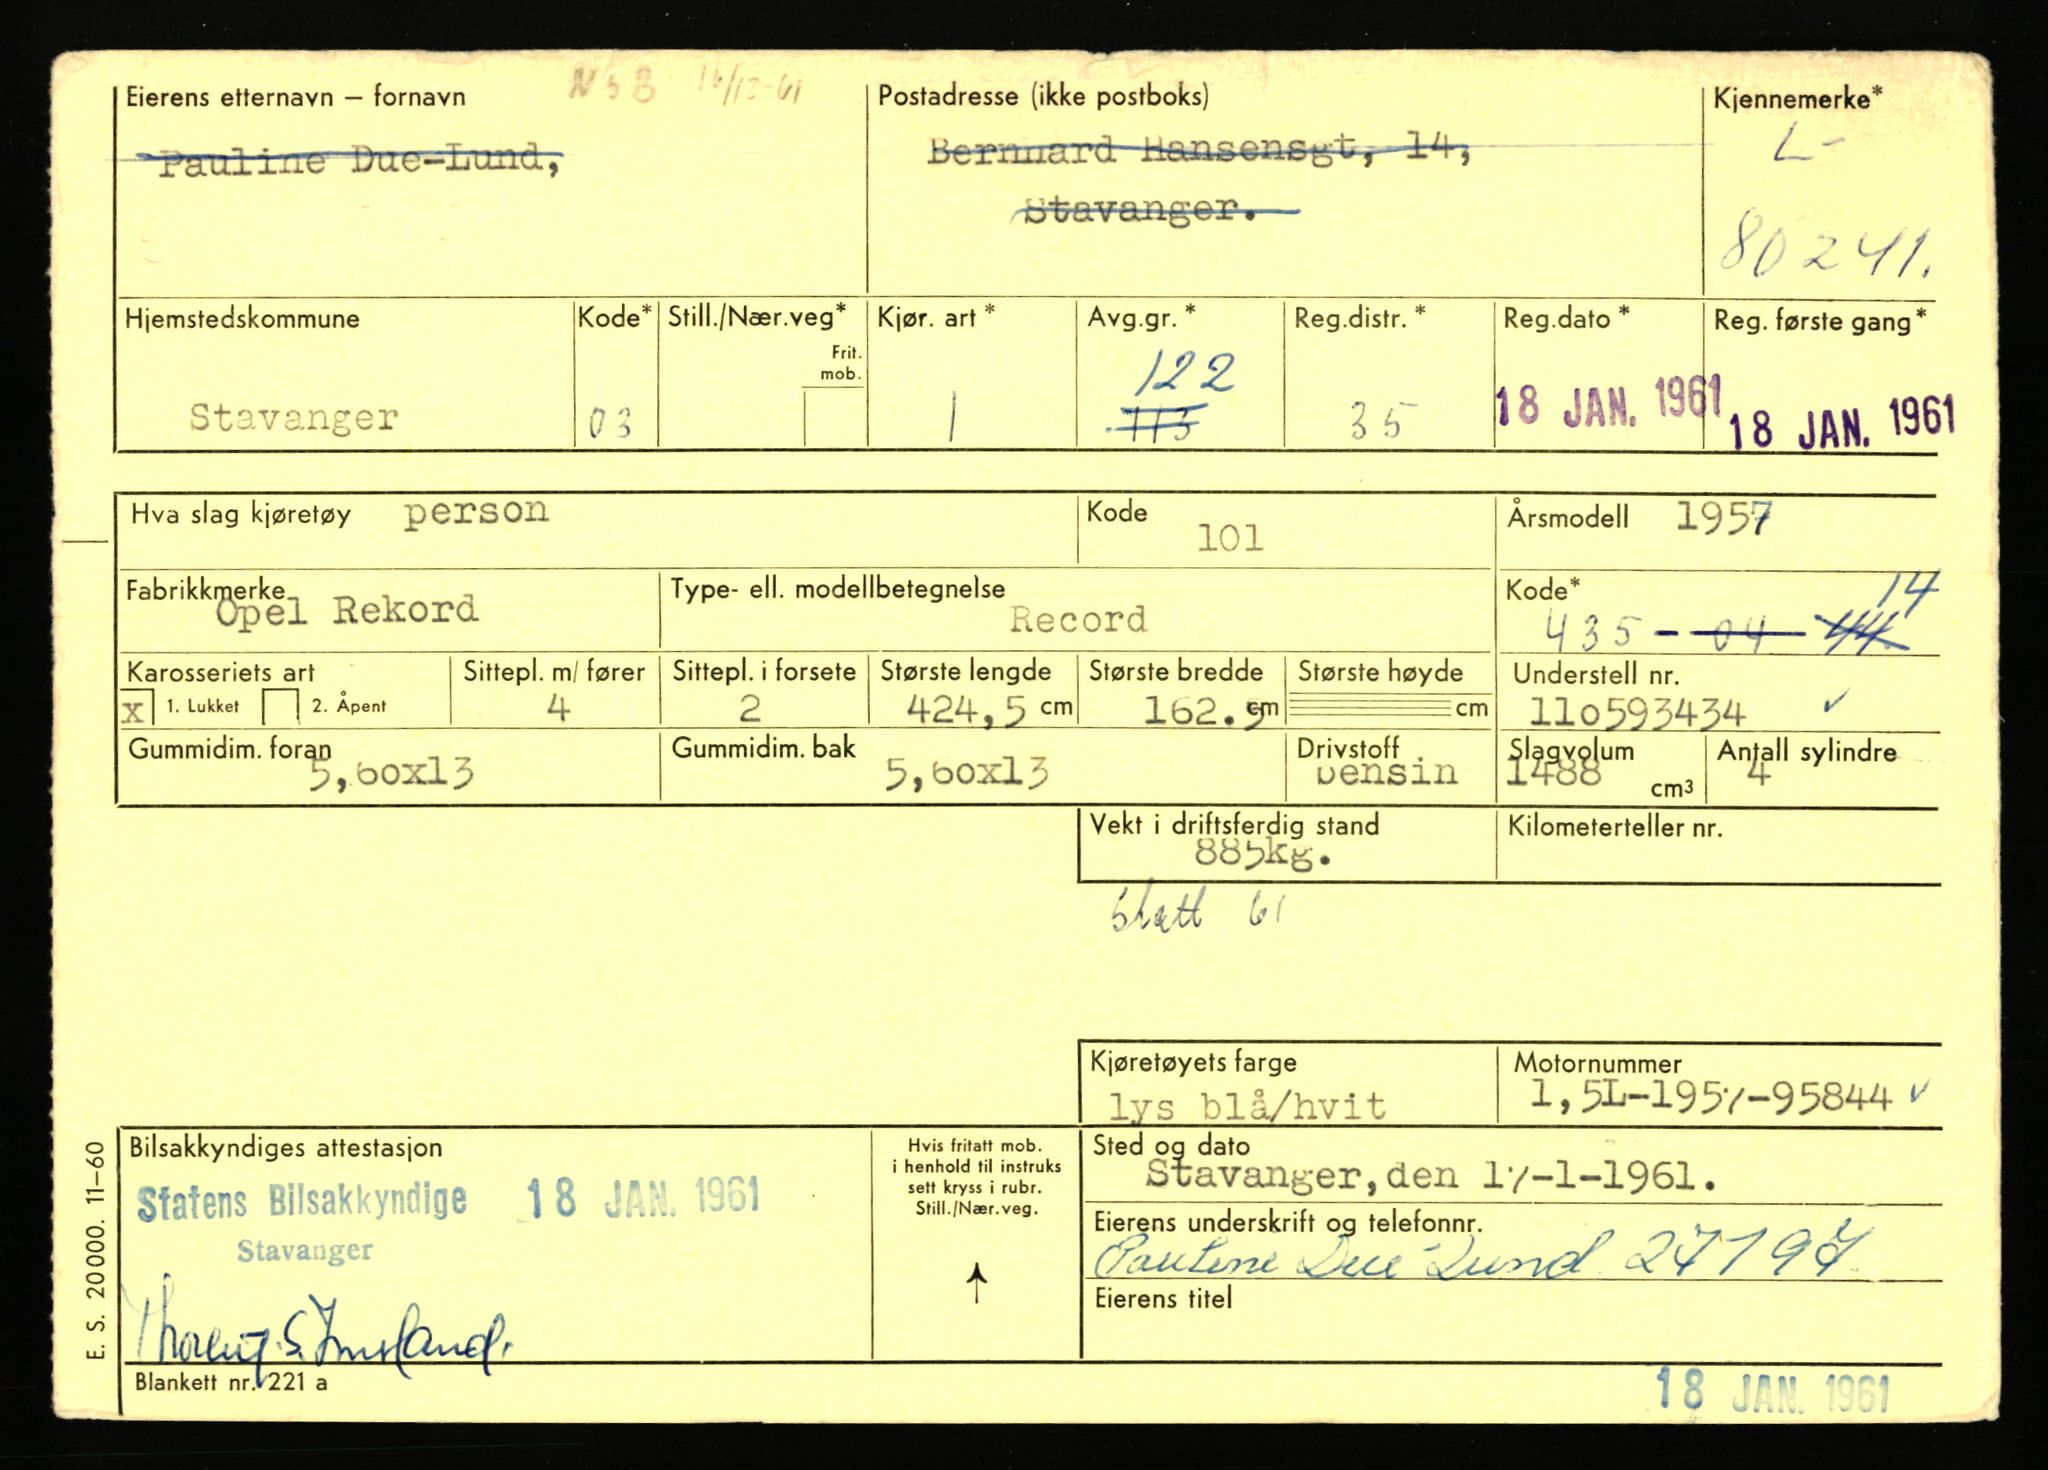 NSB 16/12-61
Eierens etternavn – fornavn
Pauline Due-Lund,
Postadresse (ikke postboks)
Bernhard Hansensgt, 14,
Stavanger.
Kjennemerke*
L-
80241.
Hjemstedskommune
Stavanger
Kode*
03
Still./Nær.veg*
Frit.
mob.
Kjør. art *
1
Avg.gr. *
122
113
Reg.distr. *
35
Reg.dato *
18 JAN. 1961
Reg. første gang*
18 JAN. 1961
Hva slag kjøretøy person
Kode
101
Årsmodell 1957
Fabrikkmerke
Opel Rekord
Type- ell. modellbetegnelse
Record
Kode*
14
435 - 04 - 44
Karosseriets art
x 1. Lukket 2. Åpent
Sittepl. m/ fører
4
Sittepl. i forsete
2
Største lengde
424,5 cm
Største bredde
162.5 cm
Største høyde
cm
Understell nr.
110593434 ✓
Gummidim. foran
5,60x13
Gummidim. bak
5,60x13
Drivstoff
bensin
Slagvolum
1488 cm³
Antall sylindre
4
Vekt i driftsferdig stand
885kg.
Kilometerteller nr.
skatt 61
Kjøretøyets farge
lys blå/hvit
Motornummer
1,5L-1957-95844 ✓
Bilsakkyndiges attestasjon
Statens Bilsakkyndige 18 JAN. 1961
Stavanger
Hvis fritatt mob.
i henhold til instruks
sett kryss i rubr.
Still./Nær.veg.
Sted og dato
Stavanger, den 17-1-1961.
Eierens underskrift og telefonnr.
Pauline Due-Lund 27197
Eierens titel
Blankett nr. 221 a
18 JAN. 1961
E. S. 20000. 11–60